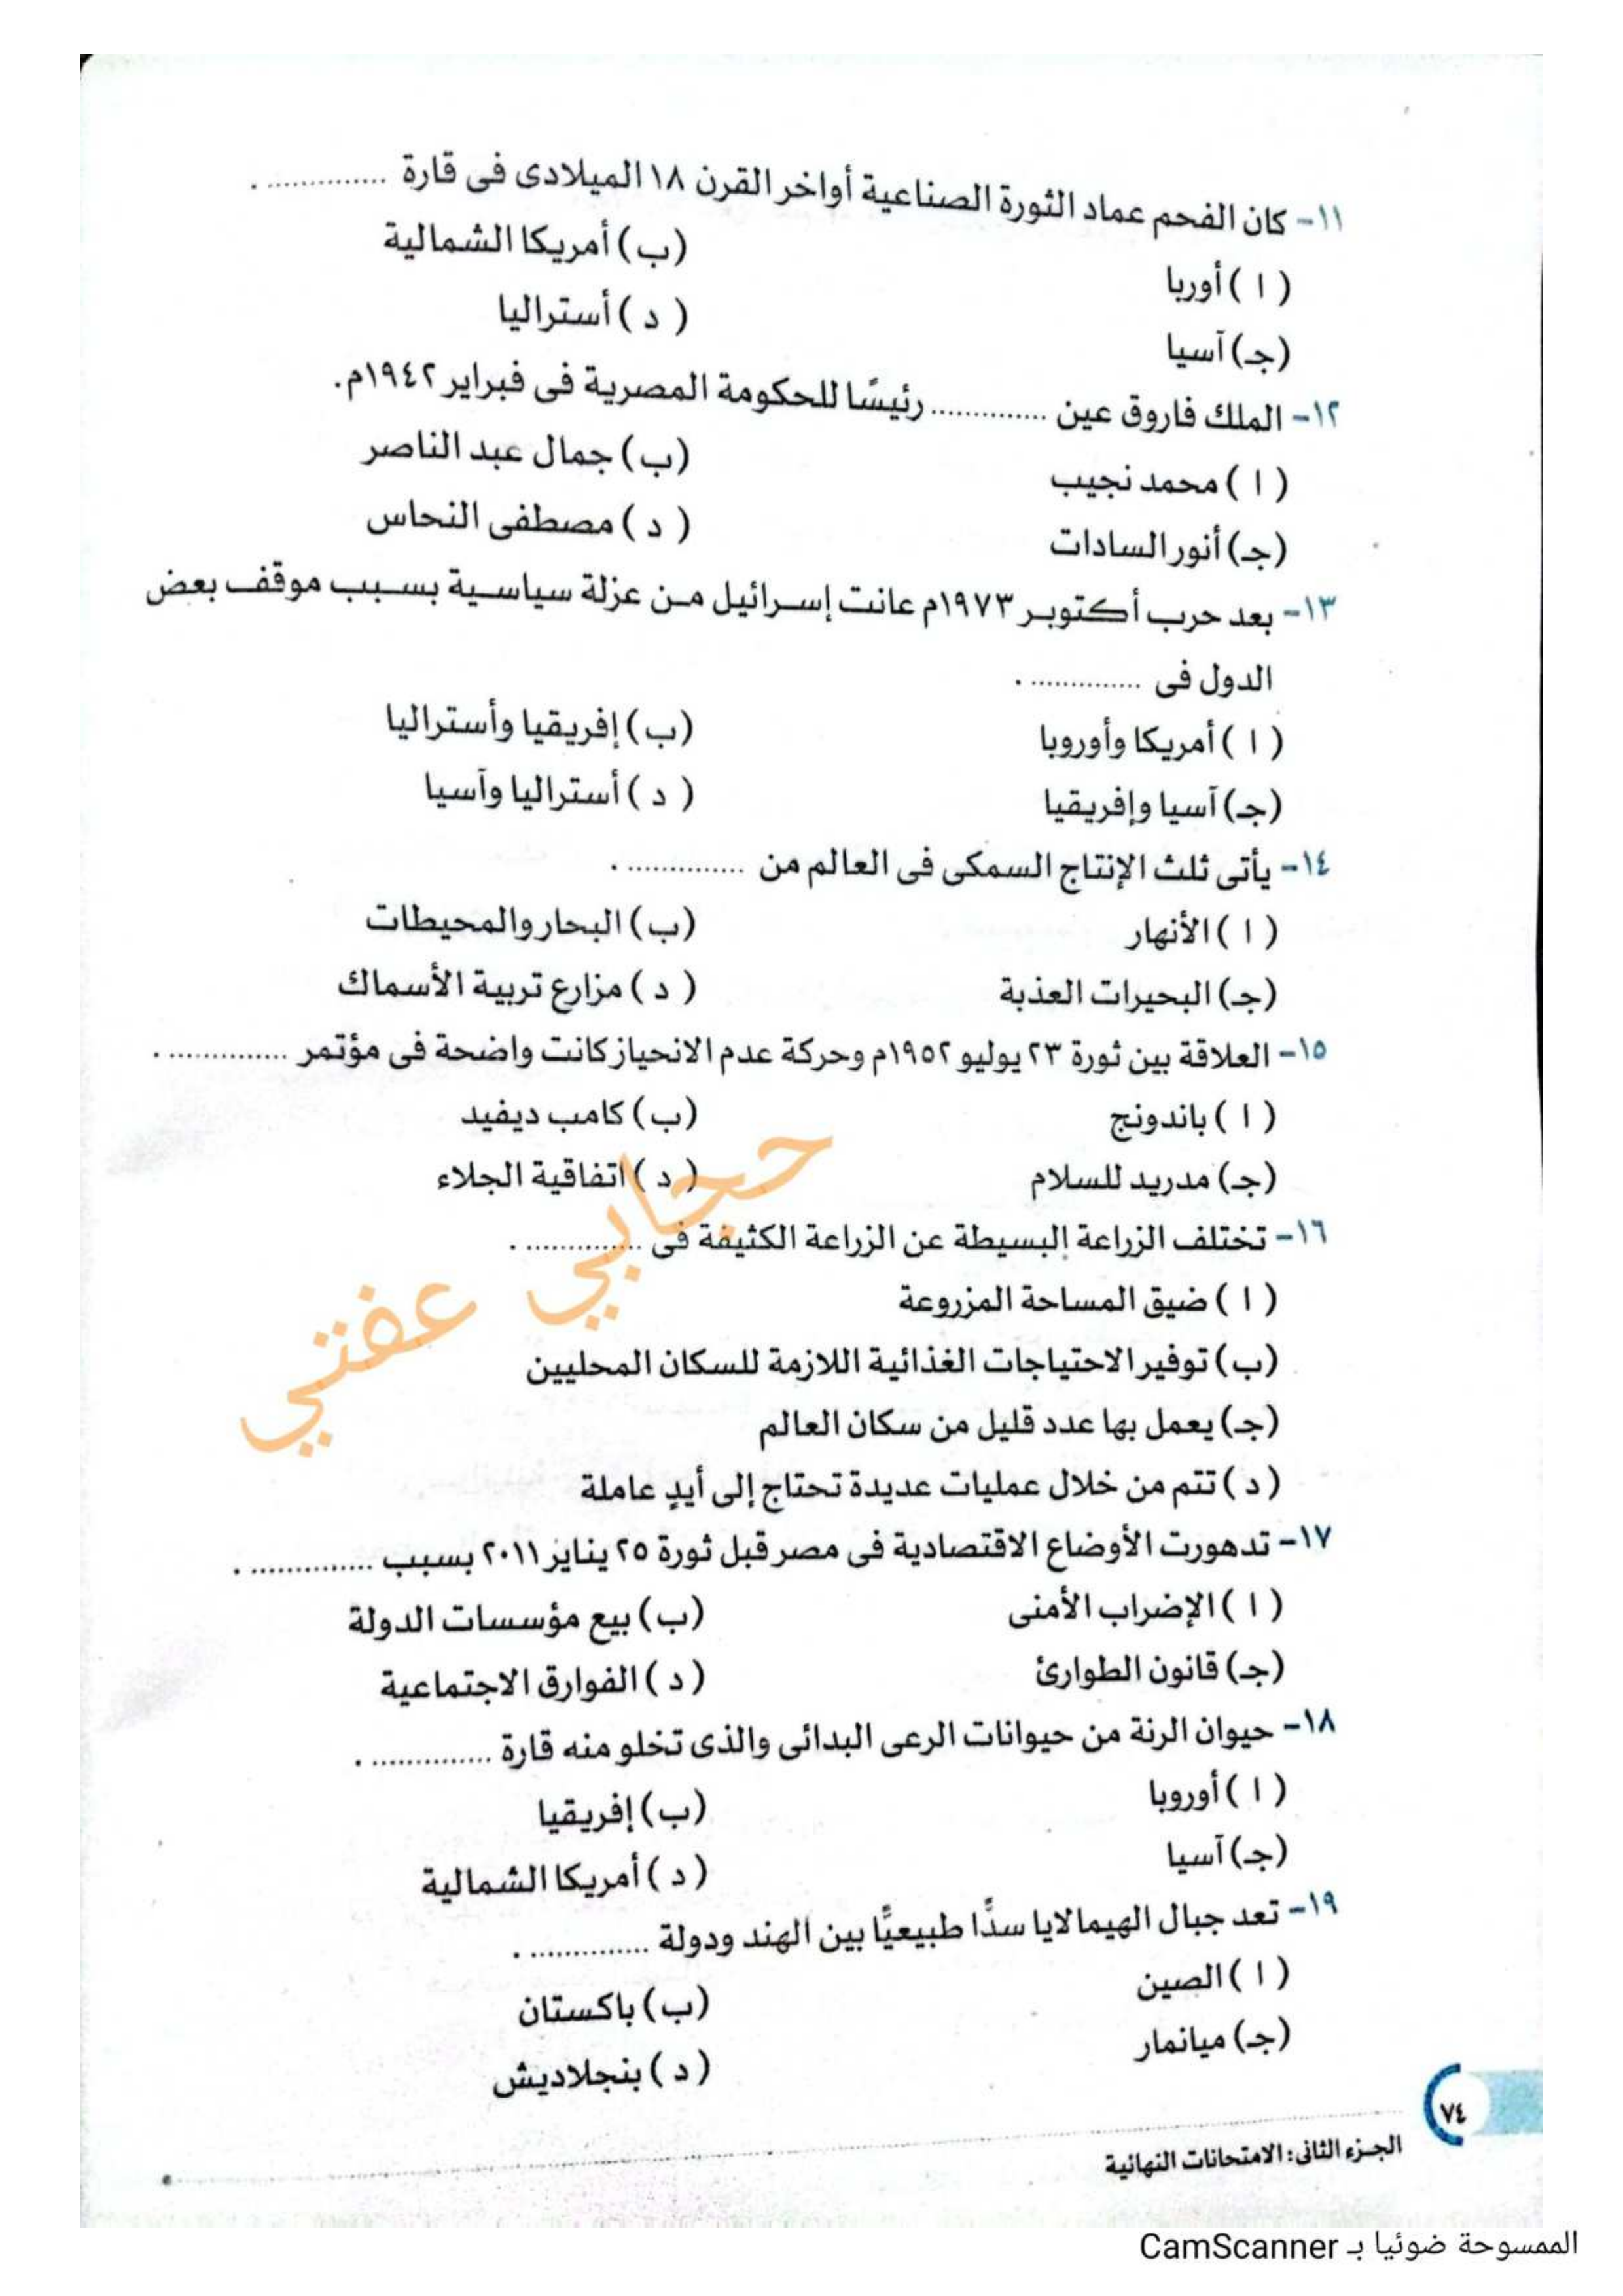 ١١- كان الفحم عماد الثورة الصناعية أواخر القرن ١٨ الميلادى فى قارة .............. .
( ا ) أوربا
(ب) أمريكا الشمالية
(جـ) آسيا
( د ) أستراليا
١٢- الملك فاروق عين .............. رئيسًا للحكومة المصرية فى فبراير ١٩٤٢م.
( ا ) محمد نجيب
(ب) جمال عبد الناصر
(جـ) أنور السادات
( د ) مصطفى النحاس
١٣- بعد حرب أكتوبر ١٩٧٣م عانت إسرائيل من عزلة سياسية بسبب موقف بعض
الدول فى .............. .
( ا ) أمريكا وأوروبا
(ب) إفريقيا وأستراليا
(جـ) آسيا وإفريقيا
( د ) أستراليا وآسيا
١٤- يأتى ثلث الإنتاج السمكى فى العالم من .............. .
( ا ) الأنهار
(ب) البحار والمحيطات
(جـ) البحيرات العذبة
( د ) مزارع تربية الأسماك
١٥- العلاقة بين ثورة ٢٣ يوليو ١٩٥٢م وحركة عدم الانحياز كانت واضحة فى مؤتمر .............. .
( ا ) باندونج
(ب) كامب ديفيد
(جـ) مدريد للسلام
( د ) اتفاقية الجلاء
١٦- تختلف الزراعة البسيطة عن الزراعة الكثيفة فى .............. .
( ا ) ضيق المساحة المزروعة
(ب) توفير الاحتياجات الغذائية اللازمة للسكان المحليين
(جـ) يعمل بها عدد قليل من سكان العالم
( د ) تتم من خلال عمليات عديدة تحتاج إلى أيدٍ عاملة
١٧- تدهورت الأوضاع الاقتصادية فى مصر قبل ثورة ٢٥ يناير ٢٠١١ بسبب .............. .
( ا ) الإضراب الأمنى
(ب) بيع مؤسسات الدولة
(جـ) قانون الطوارئ
( د ) الفوارق الاجتماعية
١٨- حيوان الرنة من حيوانات الرعى البدائى والذى تخلو منه قارة .............. .
( ا ) أوروبا
(ب) إفريقيا
(جـ) آسيا
( د ) أمريكا الشمالية
١٩- تعد جبال الهيمالايا سدًّا طبيعيًّا بين الهند ودولة .............. .
( ا ) الصين
(ب) باكستان
(جـ) ميانمار
( د ) بنجلاديش
حجابي عفتي
٧٤
الجزء الثانى: الامتحانات النهائية
الممسوحة ضوئيا بـ CamScanner